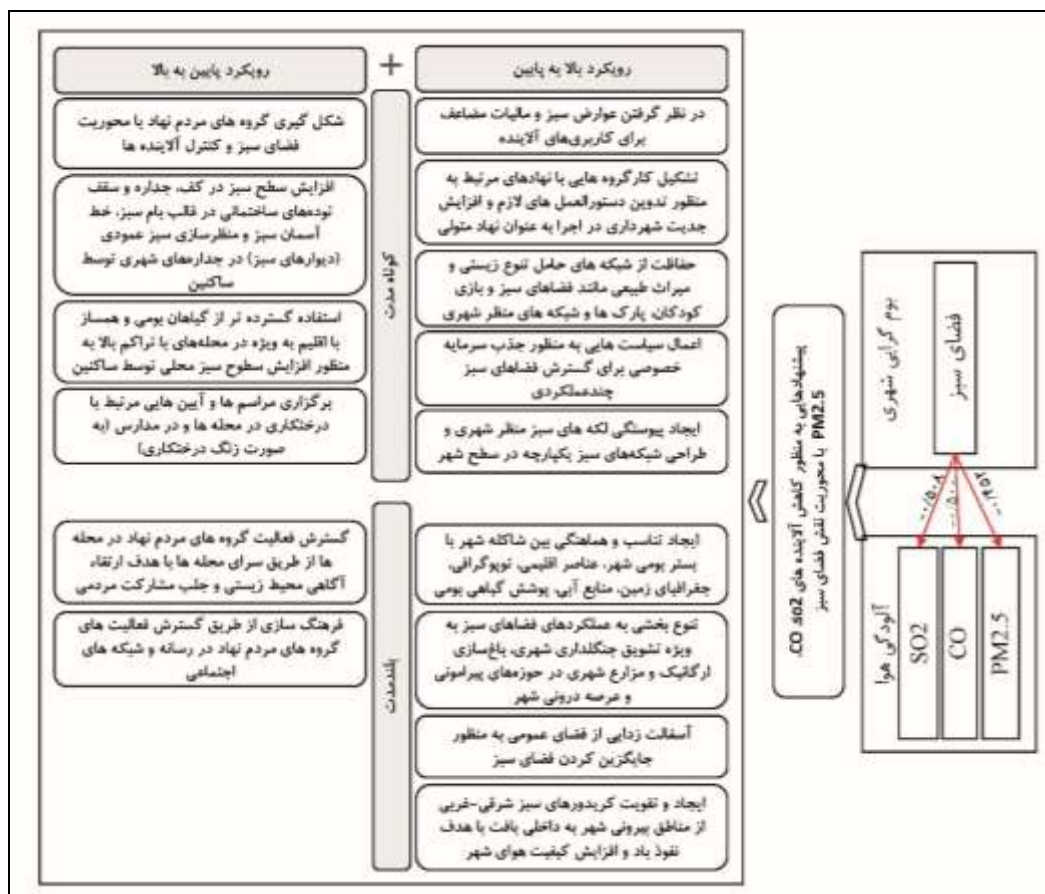 رویکرد بالا به پایین
+
رویکرد پایین به بالا
کوتاه مدت
در نظر گرفتن عوارض سبز و مالیات مضاعف
برای کاربری‌های آلاینده
تشکیل کارگروه هایی با نهادهای مرتبط به
منظور تدوین دستورالعمل های لازم و افزایش
جدیت شهرداری در اجرا به عنوان نهاد متولی
حفاظت از شبکه های حامل تنوع زیستی و
میراث طبیعی مانند فضاهای سبز و بازی
کودکان، پارک ها و شبکه های منظر شهری
اعمال سیاست هایی به منظور جذب سرمایه
خصوصی برای گسترش فضاهای سبز
چندعملکردی
ایجاد پیوستگی لکه های سبز منظر شهری و
طراحی شبکه‌های سبز یکپارچه در سطح شهر
شکل گیری گروه های مردم نهاد با محوریت
فضای سبز و کنترل آلاینده ها
افزایش سطح سبز در کف، جداره و سقف
توده‌های ساختمانی در قالب بام سبز، خط
آسمان سبز و منظرسازی سبز عمودی
(دیوارهای سبز) در جداره‌های شهری توسط
ساکنین
استفاده گسترده تر از گیاهان بومی و همساز
با اقلیم به ویژه در محله‌های با تراکم بالا به
منظور افزایش سطوح سبز محلی توسط ساکنین
برگزاری مراسم ها و آیین هایی مرتبط با
درختکاری در محله ها و در مدارس (به
صورت زنگ درختکاری)
بلندمدت
ایجاد تناسب و هماهنگی بین شاکله شهر با
بستر بومی شهر، عناصر اقلیمی، توپوگرافی،
جغرافیای زمین، منابع آبی، پوشش گیاهی بومی
تنوع بخشی به عملکردهای فضاهای سبز به
ویژه تشویق جنگلداری شهری، باغ‌سازی
ارگانیک و مزارع شهری در حوزه‌های پیرامونی
و عرصه درونی شهر
آسفالت زدایی از فضای عمومی به منظور
جایگزین کردن فضای سبز
ایجاد و تقویت کریدورهای سبز شرقی-غربی
از مناطق بیرونی شهر به داخلی بافت با هدف
نفوذ باد و افزایش کیفیت هوای شهر
گسترش فعالیت گروه های مردم نهاد در محله
ها از طریق سرای محله ها با هدف ارتقاء
آگاهی محیط زیستی و جلب مشارکت مردمی
فرهنگ سازی از طریق گسترش فعالیت های
گروه های مردم نهاد در رسانه و شبکه های
اجتماعی
پیشنهادهایی به منظور کاهش آلاینده های CO so2،
PM2.5 با محوریت نقش فضای سبز
بوم گرایی شهری
فضای سبز
-۰/۵۰۸
-۰/۵۰۰
آلودگی هوا
SO2
CO
PM2.5